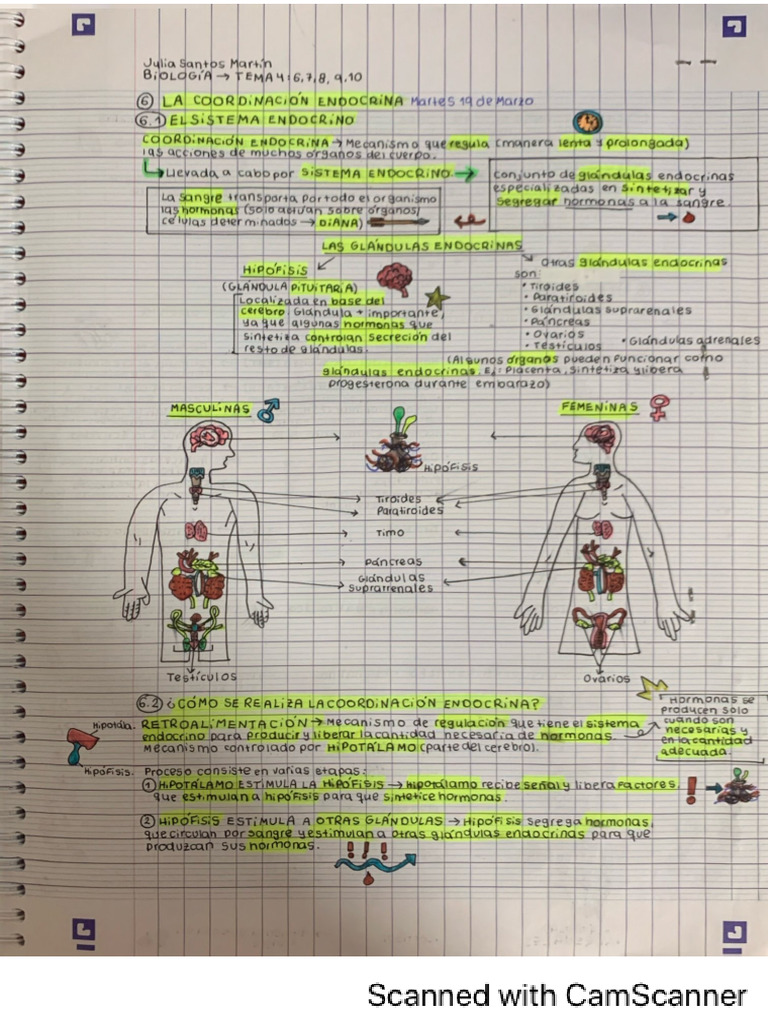 Julia Santos Martín
BIOLOGÍA → TEMA 4: 6, 7, 8, 9, 10
⑥ LA COORDINACIÓN ENDOCRINA Martes 19 de Marzo
6.1 EL SISTEMA ENDOCRINO
COORDINACIÓN ENDOCRINA → Mecanismo que regula (manera lenta y prolongada)
las acciones de muchos órganos del cuerpo.
Llevada a cabo por SISTEMA ENDOCRINO →
conjunto de glándulas endocrinas
especializadas en sintetizar y
segregar hormonas a la sangre.
La sangre transporta por todo el organismo
las hormonas (solo actúan sobre órganos/
células determinados → DIANA)
LAS GLÁNDULAS ENDOCRINAS
HIPÓFISIS
(GLÁNDULA PITUITARIA)
Localizada en base del
cerebro. Glándula + importante,
ya que algunas hormonas que
sintetiza controlan secreción del
resto de glándulas.
Otras glándulas endocrinas
son:
• Tiroides
• Paratiroides
• Glándulas suprarenales
• Páncreas
• Ovarios
• Testículos
• Glándulas adrenales
(Algunos órganos pueden funcionar como
glándulas endocrinas. Ej: Placenta, sintetiza y libera
progesterona durante embarazo)
MASCULINAS ♂
FEMENINAS ♀
HIPÓFISIS
Tiroides
Paratiroides
Timo
Páncreas
Glándulas
suprarrenales
Testículos
Ovarios
6.2 ¿CÓMO SE REALIZA LA COORDINACIÓN ENDOCRINA?
Hormonas se
producen solo
cuando son
necesarias y
en la cantidad
adecuada.
Hipotála.
Hipófisis.
RETROALIMENTACIÓN → Mecanismo de regulación que tiene el sistema
endocrino para producir y liberar la cantidad necesaria de hormonas.
Mecanismo controlado por HIPOTÁLAMO (parte del cerebro).
Proceso consiste en varias etapas:
① HIPOTÁLAMO ESTIMULA LA HIPÓFISIS → hipotálamo recibe señal y libera factores,
que estimulan a hipófisis para que sintetice hormonas.
② HIPÓFISIS ESTIMULA A OTRAS GLÁNDULAS → Hipófisis segrega hormonas,
que circulan por sangre y estimulan a otras glándulas endocrinas para que
produzcan sus hormonas.
Scanned with CamScanner